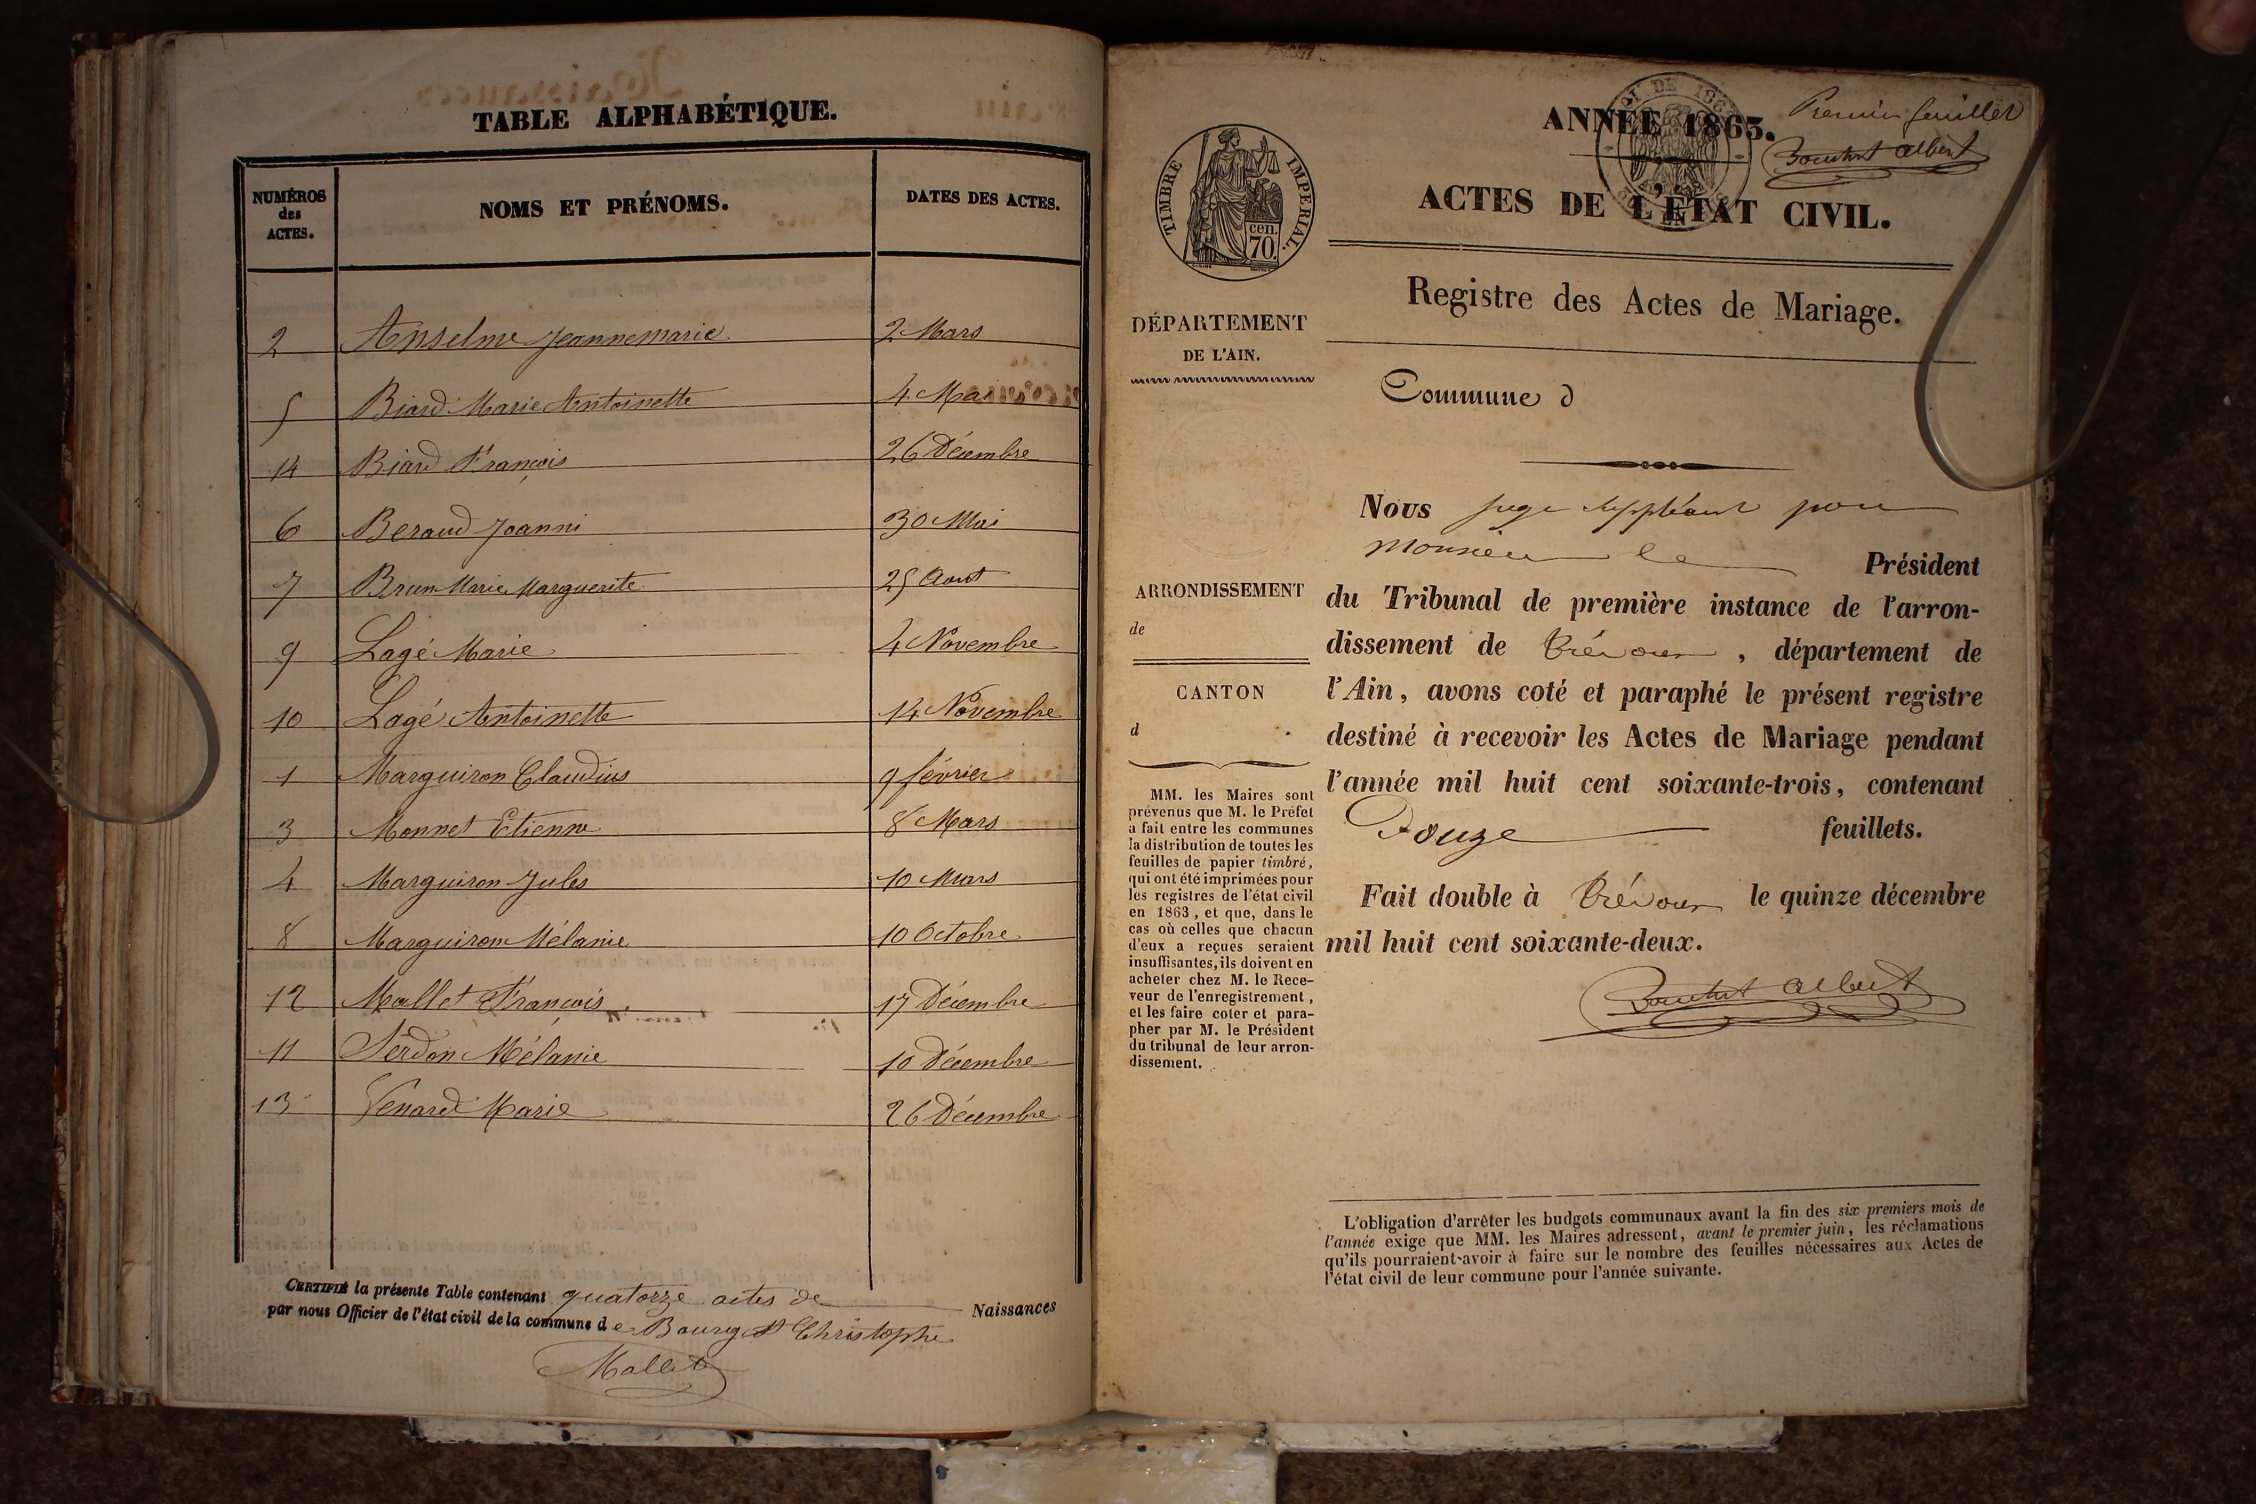 TABLE ALPHABÉTIQUE.
NUMÉROS des ACTES. NOMS ET PRÉNOMS. DATES DES ACTES.
2 Anselme Jeannemarie 2 Mars
5 Biard Marie Antoinette 4 Mai
14 Biard François 26 Décembre
6 Beraud Joanni 30 Mai
7 Brun Marie Marguerite 25 Aout
9 Lagé Marie 4 Novembre
10 Lagé Antoinette 14 Novembre
1 Marguiron Claudius 9 février
3 Monnet Etienne 8 Mars
4 Marguiron Jules 10 Mars
8 Marguiron Mélanie 10 Octobre
12 Mallet François 17 Décembre
11 Serdon Mélanie 10 Décembre
13 Venard Marie 26 Décembre
CERTIFIÉ la présente Table contenant quatorze actes de Naissances
par nous Officier de l'état civil de la commune de Bourg St Christophe
Mallet
Premier feuillet
ANNÉE 1863.
Bouchet Albert
ACTES DE L'ÉTAT CIVIL.
TIMBRE IMPERIAL.
cen.
70.
Registre des Actes de Mariage.
DÉPARTEMENT
DE L'AIN.
Commune d
ARRONDISSEMENT
de
CANTON
d
MM. les Maires sont
prévenus que M. le Préfet
a fait entre les communes
la distribution de toutes les
feuilles de papier timbré,
qui ont été imprimées pour
les registres de l'état civil
en 1863, et que, dans le
cas où celles que chacun
d'eux a reçues seraient
insuffisantes, ils doivent en
acheter chez M. le Rece-
veur de l'enregistrement,
et les faire coter et para-
pher par M. le Président
du tribunal de leur arron-
dissement.
Nous juge suppléant pour
Monsieur le Président
du Tribunal de première instance de l'arron-
dissement de Trévoux, département de
l'Ain, avons coté et paraphé le présent registre
destiné à recevoir les Actes de Mariage pendant
l'année mil huit cent soixante-trois, contenant
Douze feuillets.
Fait double à Trévoux le quinze décembre
mil huit cent soixante-deux.
Bouchet Albert
L'obligation d'arrêter les budgets communaux avant la fin des six premiers mois de
l'année exige que MM. les Maires adressent, avant le premier juin, les réclamations
qu'ils pourraient avoir à faire sur le nombre des feuilles nécessaires aux Actes de
l'état civil de leur commune pour l'année suivante.